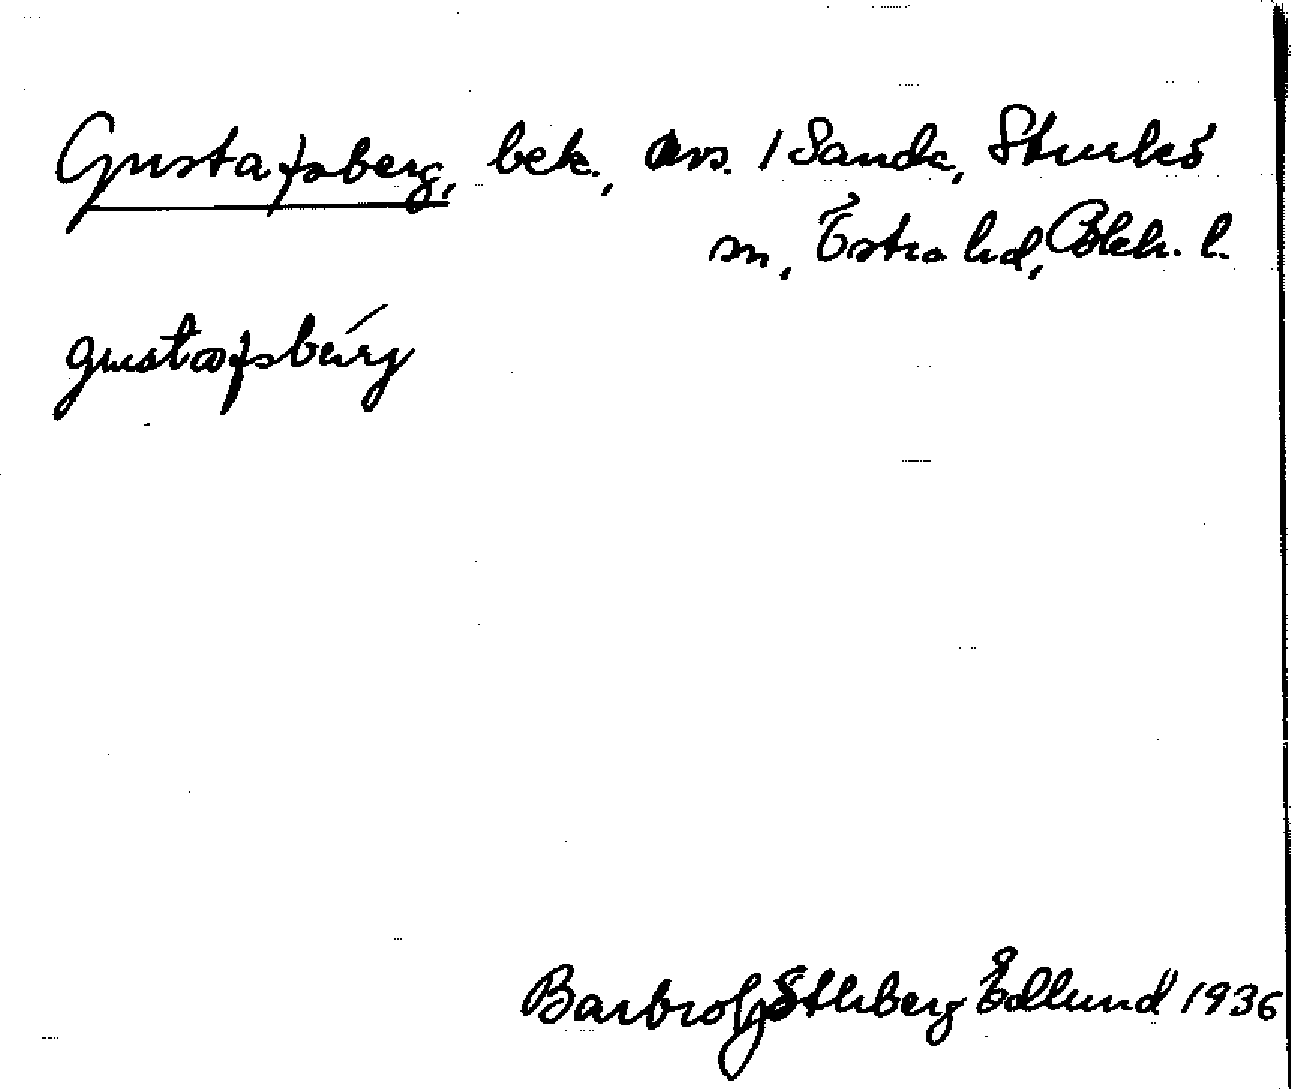 Gustafsberg, bek., avs. / Sanda, Sturkö
sn, Östra hd, Blek. l.
gustafsbärg
Barbro Edlund 1936